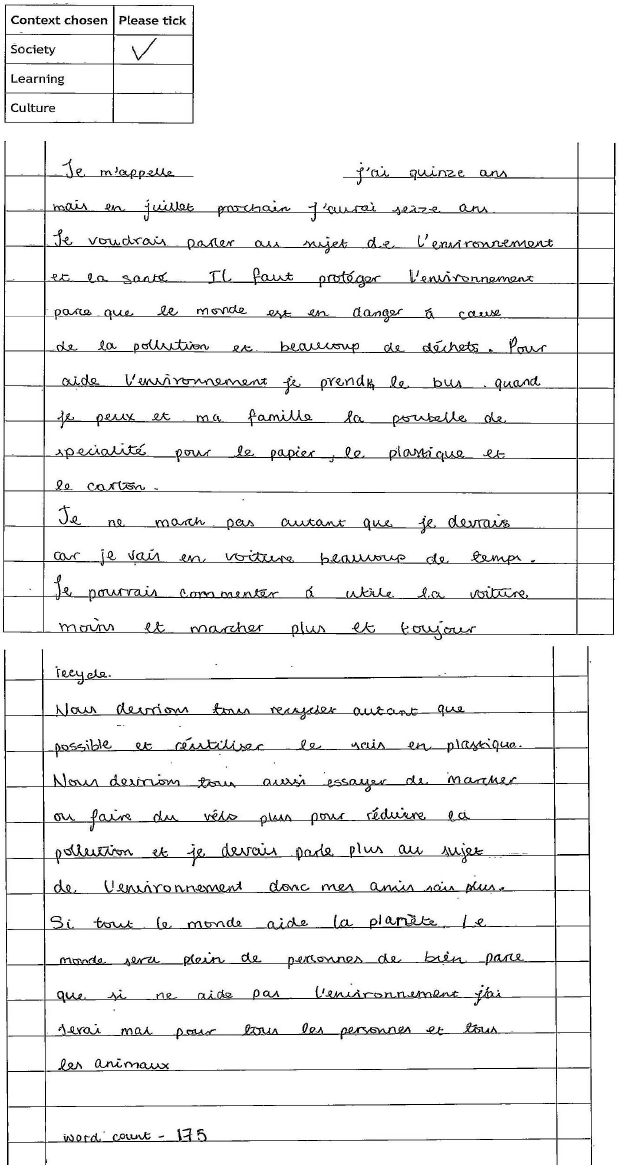 Context chosen Please tick
Society ✓
Learning
Culture
Je m'appelle j'ai quinze ans
mais en juillet prochain j'aurai seize ans.
Je voudrais parler au sujet de l'environnement
et la santé Il faut protéger l'environnement
parce que le monde est en danger à cause
de la pollution et beaucoup de déchets. Pour
aide l'environnement je prends le bus. quand
je peux et ma famille la poubelle de
specialité pour le papier, le plastique et
le carton.
Je ne march pas autant que je devrais
car je vais en voiture beaucoup de temps.
Je pourrais commenter à utile la voiture
moins et marcher plus et toujour
recycle.
Nous devrions tous recycler autant que
possible et réutiliser le sais en plastique.
Nous devrions tous aussi essayer de marcher
ou faire du vélo plus pour réduire la
pollution et je devais parle plus au sujet
de l'environnement donc mes amis sais plus.
Si tout le monde aide la planète, le
monde sera plein de personnes de bien parce
que si ne aide pas l'environnement j'ai
serai mal pour tous les personnes et tous
les animaux
word count - 175